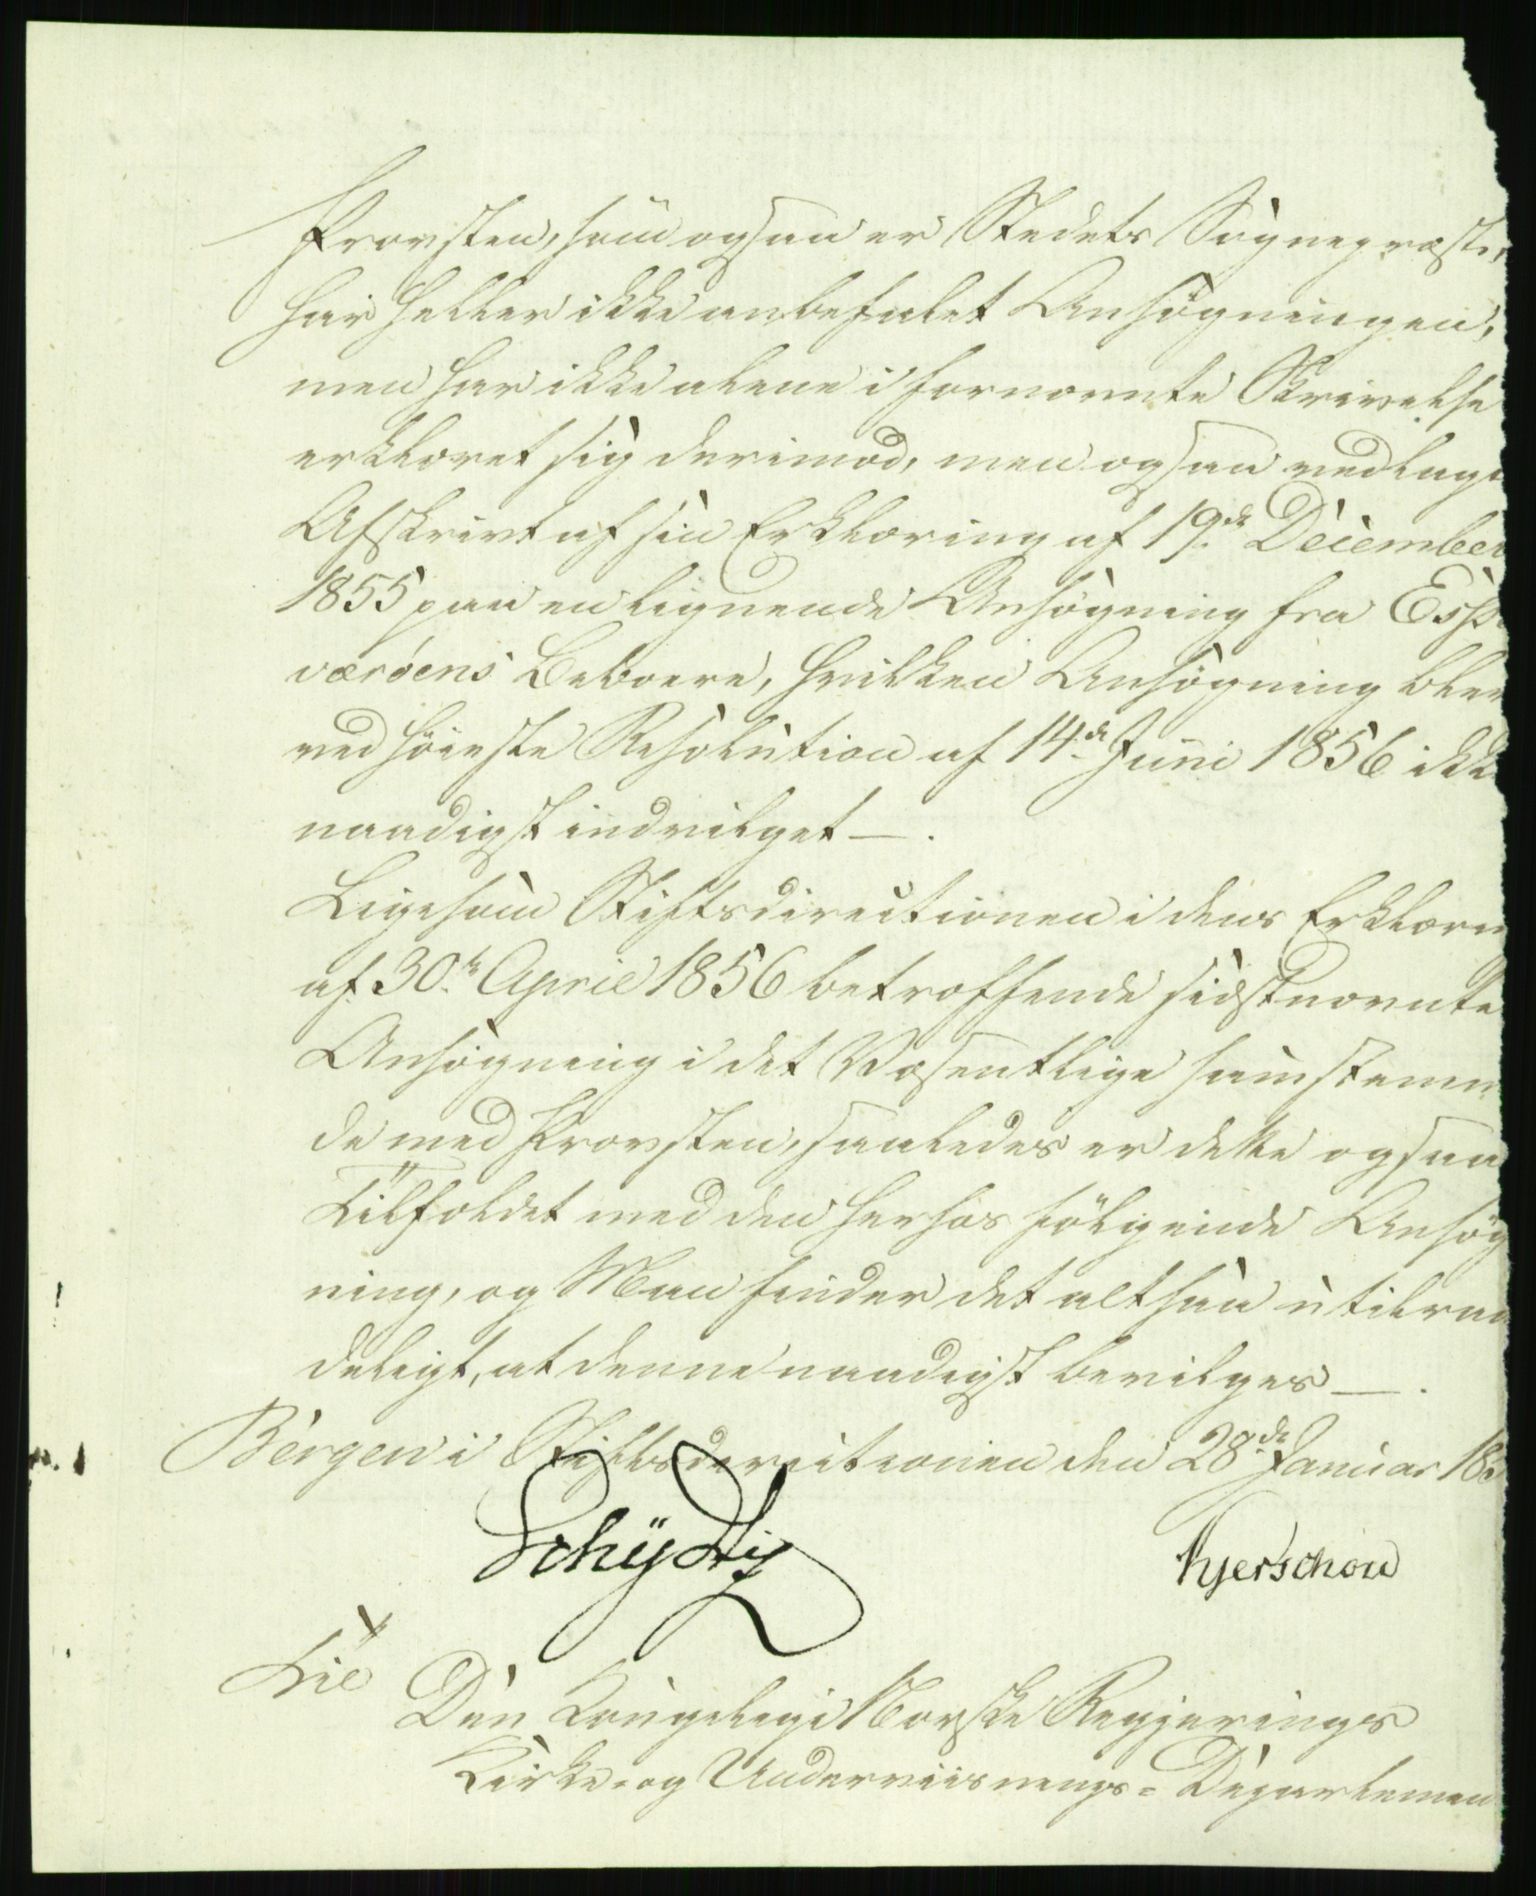 Provsten, som ogsaa er Stedets Sognepræst,
har heller ikke anbefalet Ansøgningen,
men har ikke alene i fornævnte Skrivelse
erklæret sig derimod, men ogsaa vedlagt
Afskrivt af sin Erklæring af 19de December
1855 paa en lignende Ansøgning fra Espe
værøens Beboere, hvilken Ansøgning blev
ved høieste Resolution af 14de Juni 1856 ikke
naadigst indvilget —.
Ligesom Stiftsdirectionen i dens Erklærin
af 30te April 1856 betræffende sidstnævnte
Ansøgning i det Væsentlige samstemm
de med Provsten, saaledes er dette ogsaa
Tilfældet med den herhos følgende Ansøg
ning, og Man finder det altsaa utilraa
deligt, at denne naadigst bevilges —.
Bergen i Stiftsdirectionen den 28de Januar 185
Schydtz
Kjerschow
Til
Den Kongelige Norske Regjerings
Kirke- og Underviisnings-Departemen